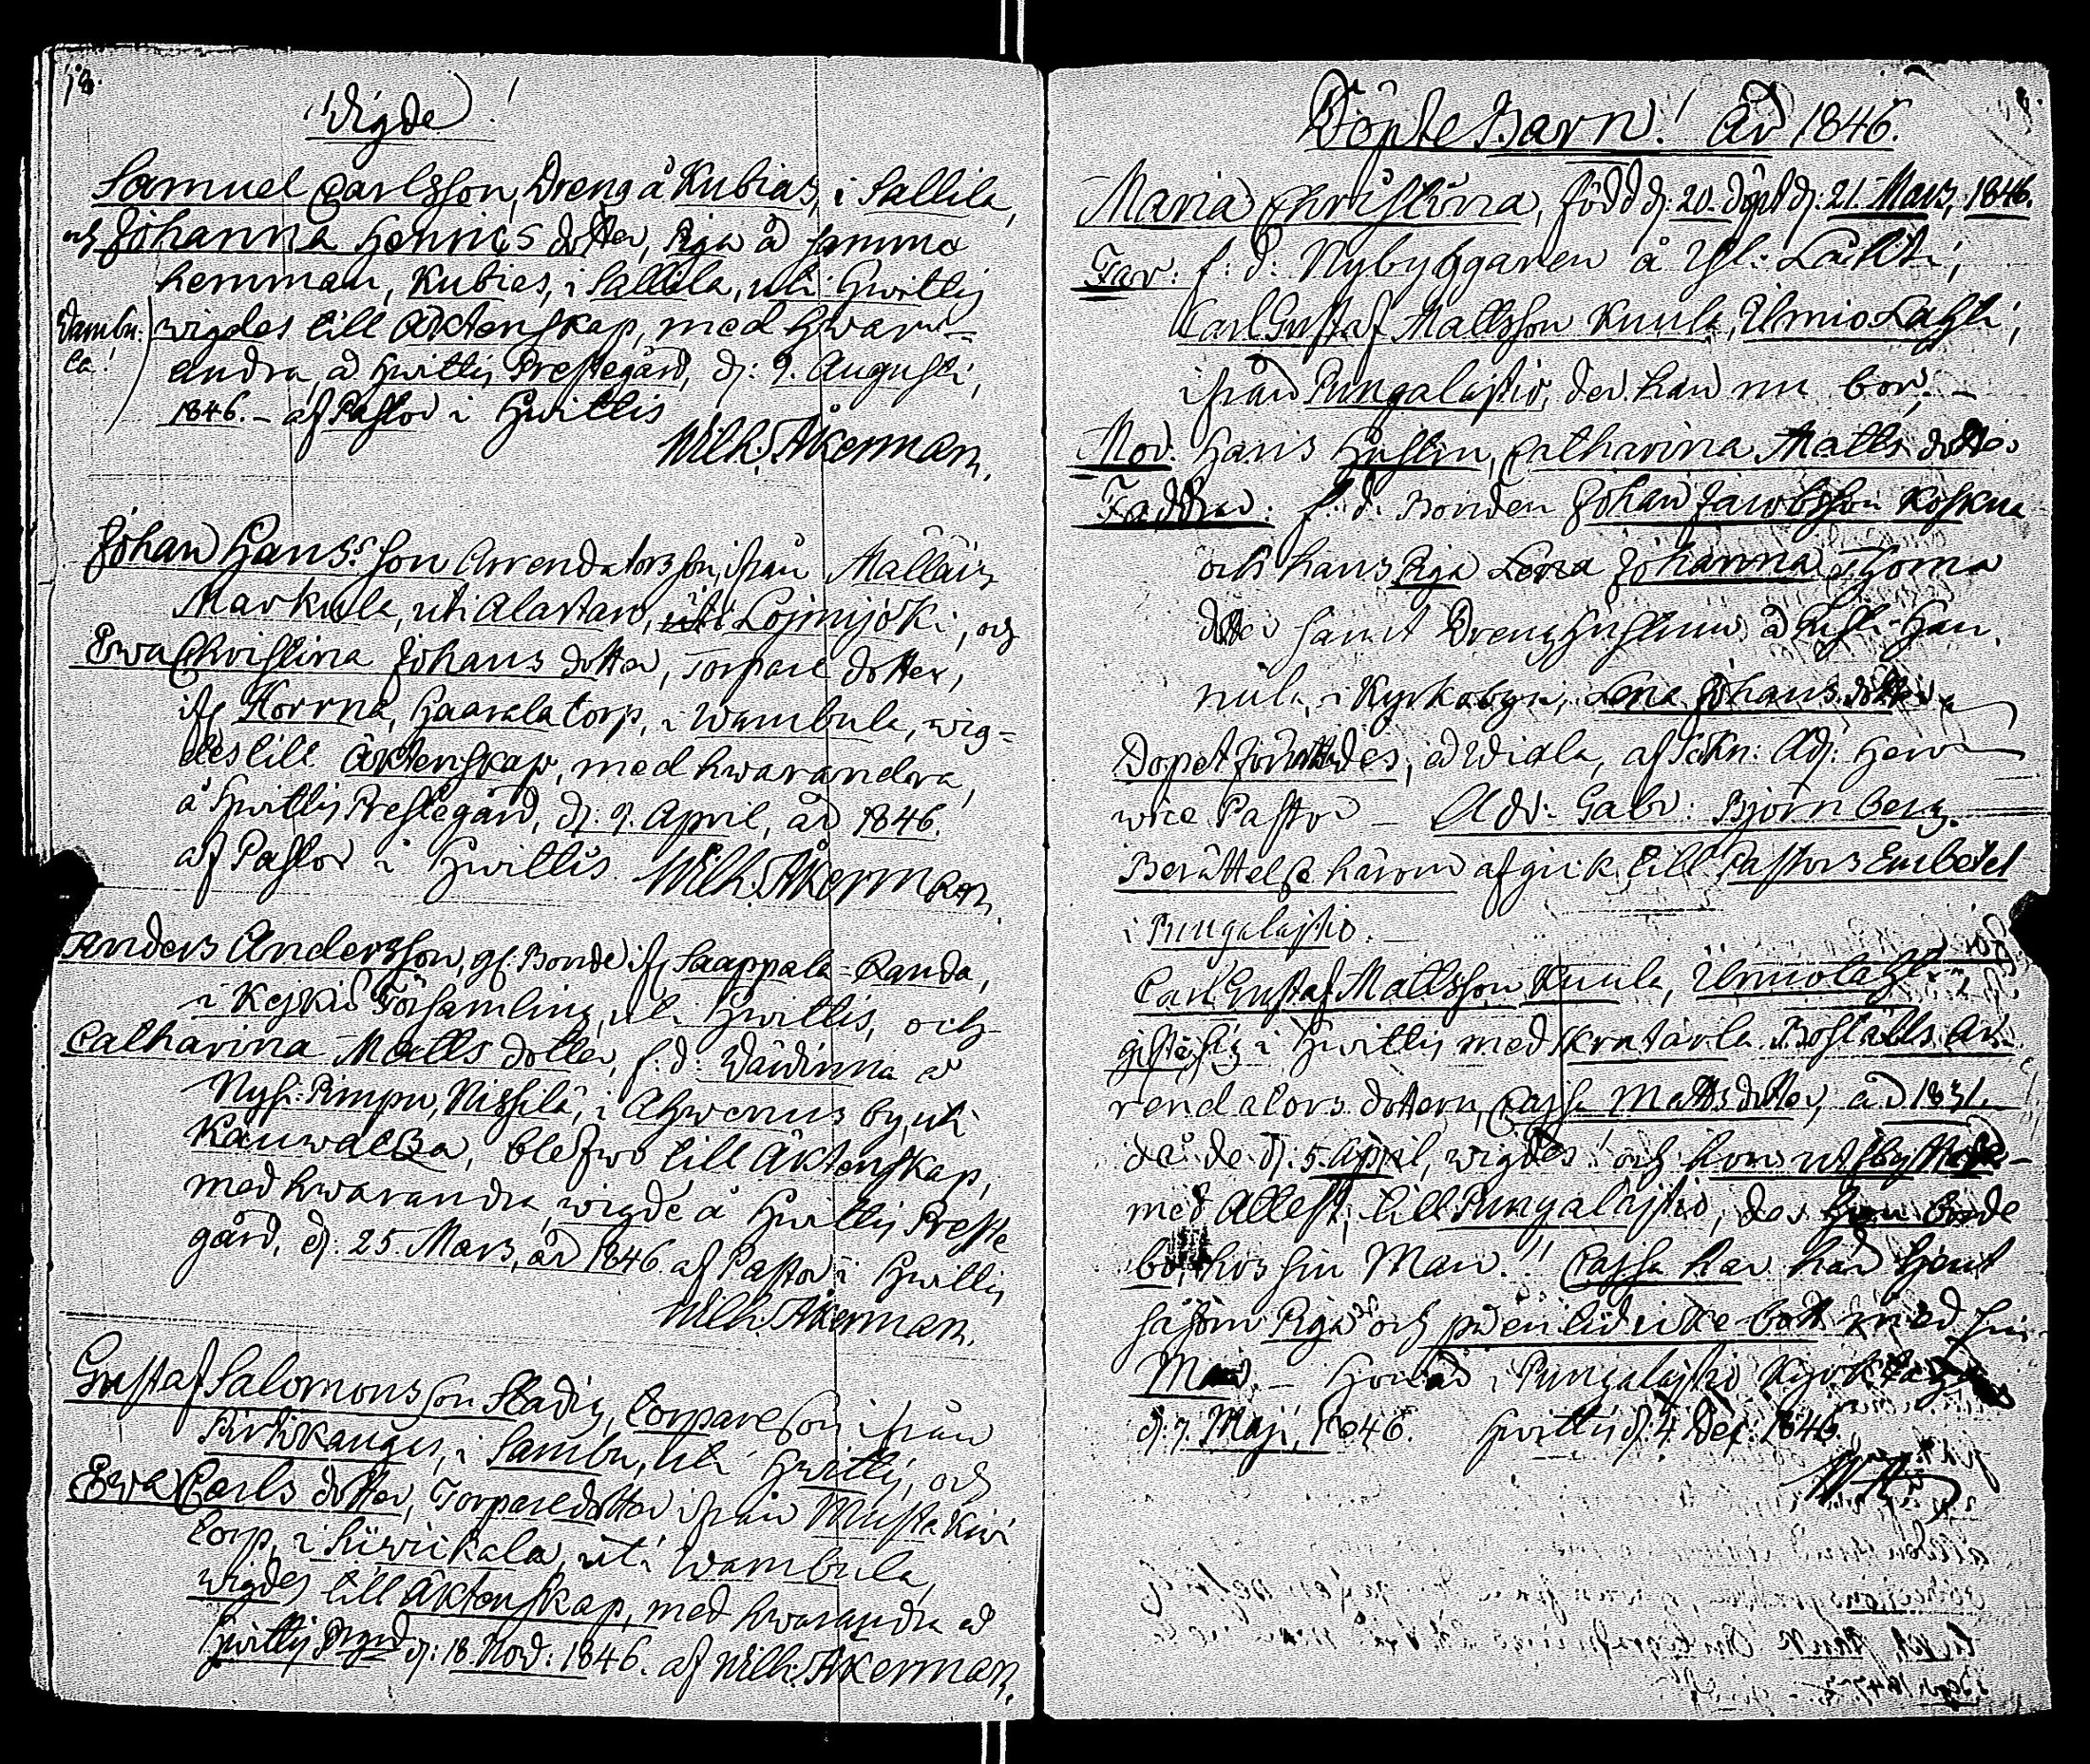 Wigde!
Samuel Carlsson, Dreng å Kubias, i Sallila,
och Johanna Henrics dotter, Piga å samma
hemman, Kubias, i Sallila, uti Hwittis
Wambu-
la!
wigdes till Äktenskap, med hwar-
andra, å Hwittis Prestegård, d: 9. Augusti,
1846. – af Pastor i Hwittis
Wilh. Åkerman.
Johan Hans:s son Arrendators son, ifrån Mallais
Markula, uti Alastaro, uti Lojmijoki, och
Ewa Christina Johans dotter, Torpare dotter,
ifr Korrna, Haarala torp, i Wambula, wig-
des till Äktenskap, med hwarandra,
å Hwittis Prestegård, d: 9. April, år 1846.
af Pastor i Hwittis. Wilh. Åkerman.
Anders Andersson, gl Bonde ifr Saappala-Randa,
i Kejkiö Församling, uti Hwittis, och
Catharina Matts dotter, f.d: Wärdinna å
Nyh: Pimpu, Nissilä, i Ahwenus by, uti
Kauwatza, blefwo till Äktenskap,
med hwarandra, wigde å Hwittis Preste
gård, d: 25. Mars, år 1846. af Pastor i Hwittis
Wilh. Åkerman.
Gustaf Salomonsson Stadig, torpare son ifrån
Pirkkanges, i Sambu, uti Hwittis, och
Ewa Carls dotter, Torparedotter ifrån Musta Kivi
torp, i Suwikala, uti Wambula,
wigdes till Äktenskap, med hwarandra å
Hwittis Prgrd d: 18. Nov: 1846. af Wilh. Åkerman.
Döpte Barn! År 1846.
Maria Christina, född d: 20. döpt d: 21. Mars, 1846.
Far: f: d: Nybyggaren å Lahti,
Carl Gustaf Mattsson Kuula, Ulmio Lahti,
ifrån Pungalajtio, der han nu bor. –
Mor: Hans Hustru, Catharina Matts dotter
Faddrar: f. d. Bonden Johan Jacobsson Koskua
och hans Piga Lena Johanna Thoma
dotter samt Dreng hustrun å Han-
nula, i Kyrkobyn, Lena Johans dotter
Dopet förrättades, å Widla, af Sckn: Adj: Herr
wice Pastor – Adv: Gabr: Björnberg.
Berättelse härom afgick till Pastors Embetet
i Pungalajtio. –
Carl Gustaf Mattsson Kuula, Ulmiolahti
gifte sig i Hwittis med Boställs Ar-
rendators dottern, Cajsa Matts dotter, år 1831.
då de d: 5. April, wigdes! och hon utflyttade
med Attest, till Pungalajtio, der hon borde
bo, hos sin Man!! Cajsa har här tjent
såsom Piga och på en tid icke bott med sin
Man. – Hon är i Pungalajtio Kyrktagen
d: 7. Maji, 1846. Hwittis d: 4. Dec: 1846.